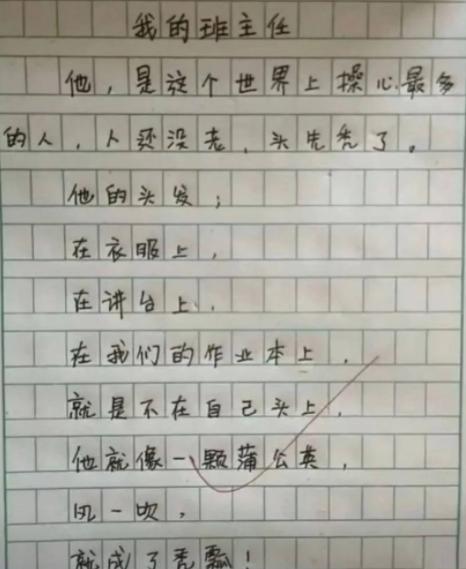 我的班主任
他，是这个世界上操心最多
的人，人还没老，头先秃了。
他的头发；
在衣服上，
在讲台上，
在我们的作业本上，
就是不在自己头上，
他就像一颗蒲公英，
风一吹，
就成了秃瓢！